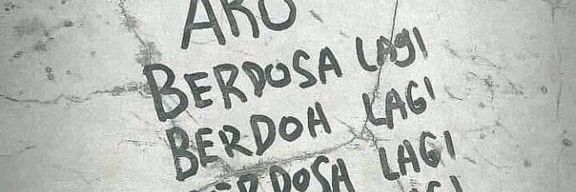 AKU
BERDOSA LAGI
BERDOH LAGI
BERDOSA LAGI
LAGI